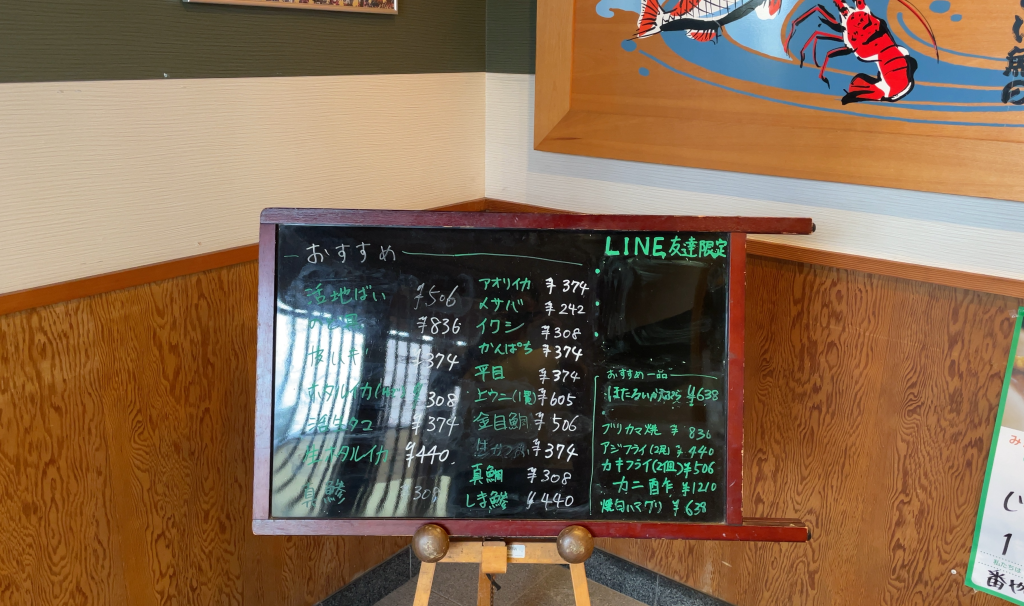 おすすめ
活地ばい ¥506
¥836
¥374
ホタルイカ ¥308
タコ ¥374
生ホタルイカ ¥440
真鯵 ¥308
アオリイカ ¥374
〆サバ ¥242
イワシ ¥308
かんぱち ¥374
平目 ¥374
上ウニ(1貫) ¥605
金目鯛 ¥506
¥374
真鯛 ¥308
しま鯵 ¥440
LINE友達限定
おすすめ一品
¥638
ブリカマ焼 ¥836
アジフライ(2尾) ¥440
カキフライ(2個) ¥506
カニ酢 ¥1210
焼白ハマグリ ¥638